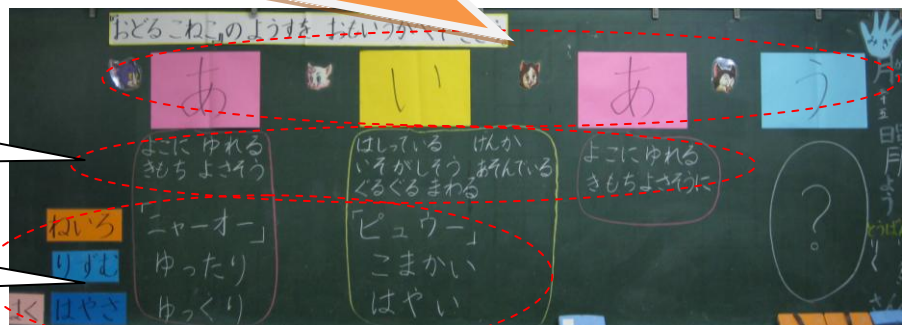 「おどるこねこ」のようすを おもいうか
あ
い
あ
う
よこに ゆれる
きもち よさそう
はしっている けんか
いそがしそう あそんでいる
ぐるぐる まわる
よこに ゆれる
きもちよさそうに
?
ねいろ
りずむ
はやさ
「ニャーオー」
ゆったり
ゆっくり
「ピュウー」
こまかい
はやい
月
日
月よう